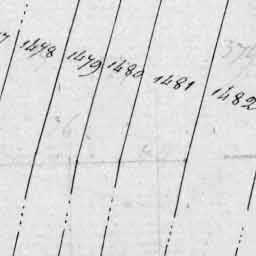 7 1478 1479 1480 1481 1482
374